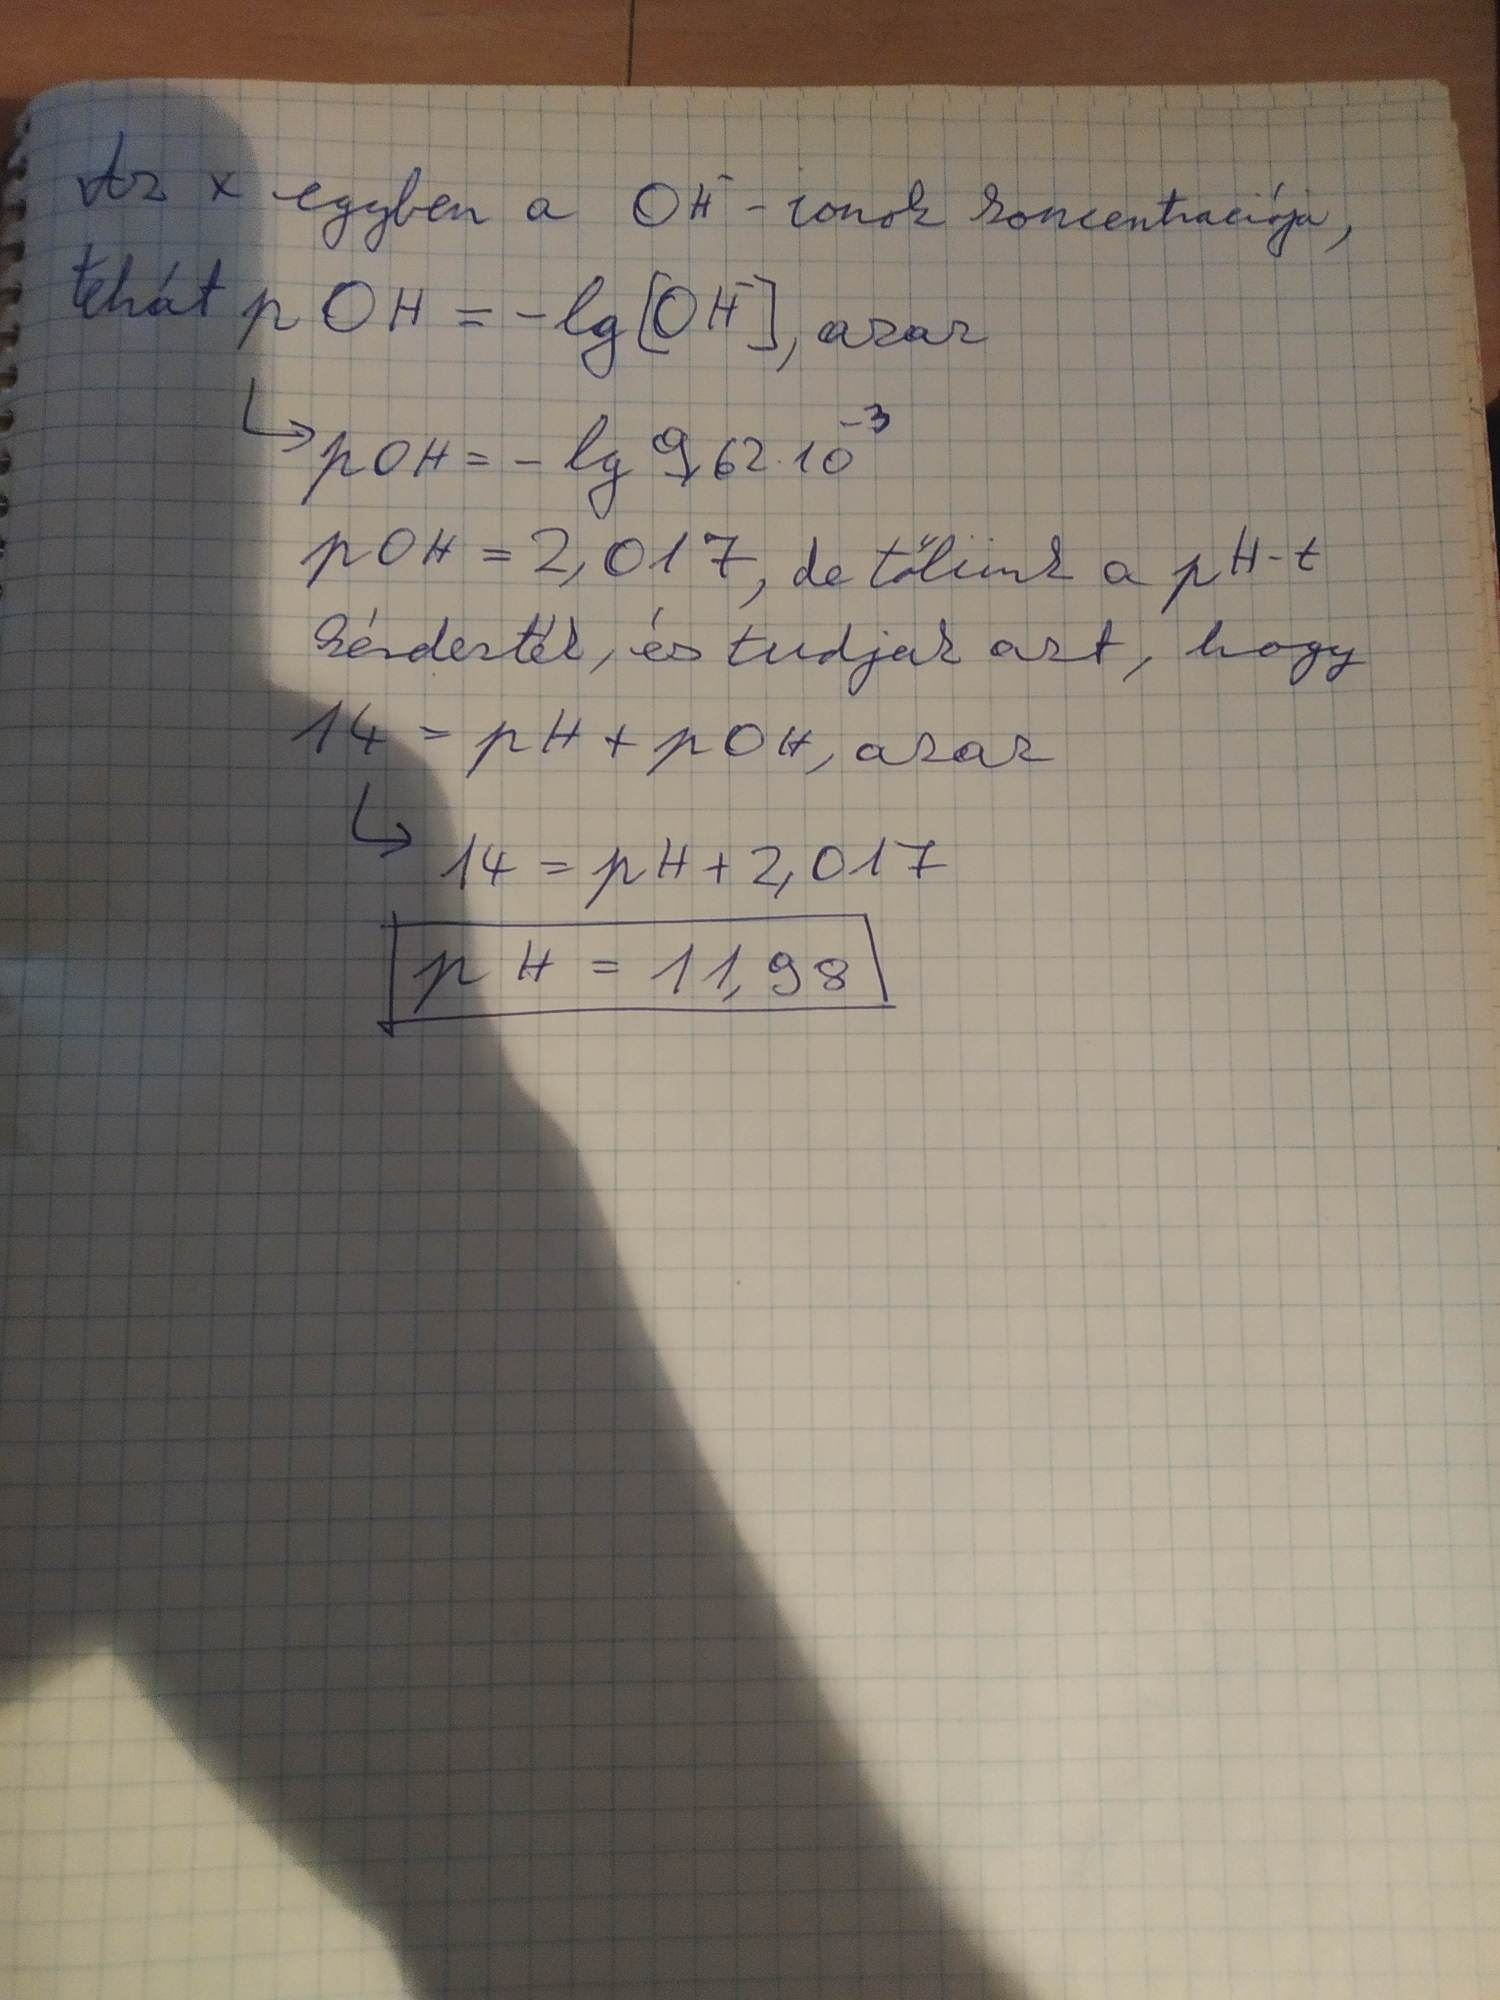 Az x egyben a OH⁻-ionok koncentrációja,
tehát pOH = -lg[OH⁻], azaz
↳ pOH = - lg 9,62·10⁻³
pOH = 2,017, de tőlünk a pH-t
kérdezték, és tudjuk azt, hogy
14 = pH + pOH, azaz
↳ 14 = pH + 2,017
pH = 11,98